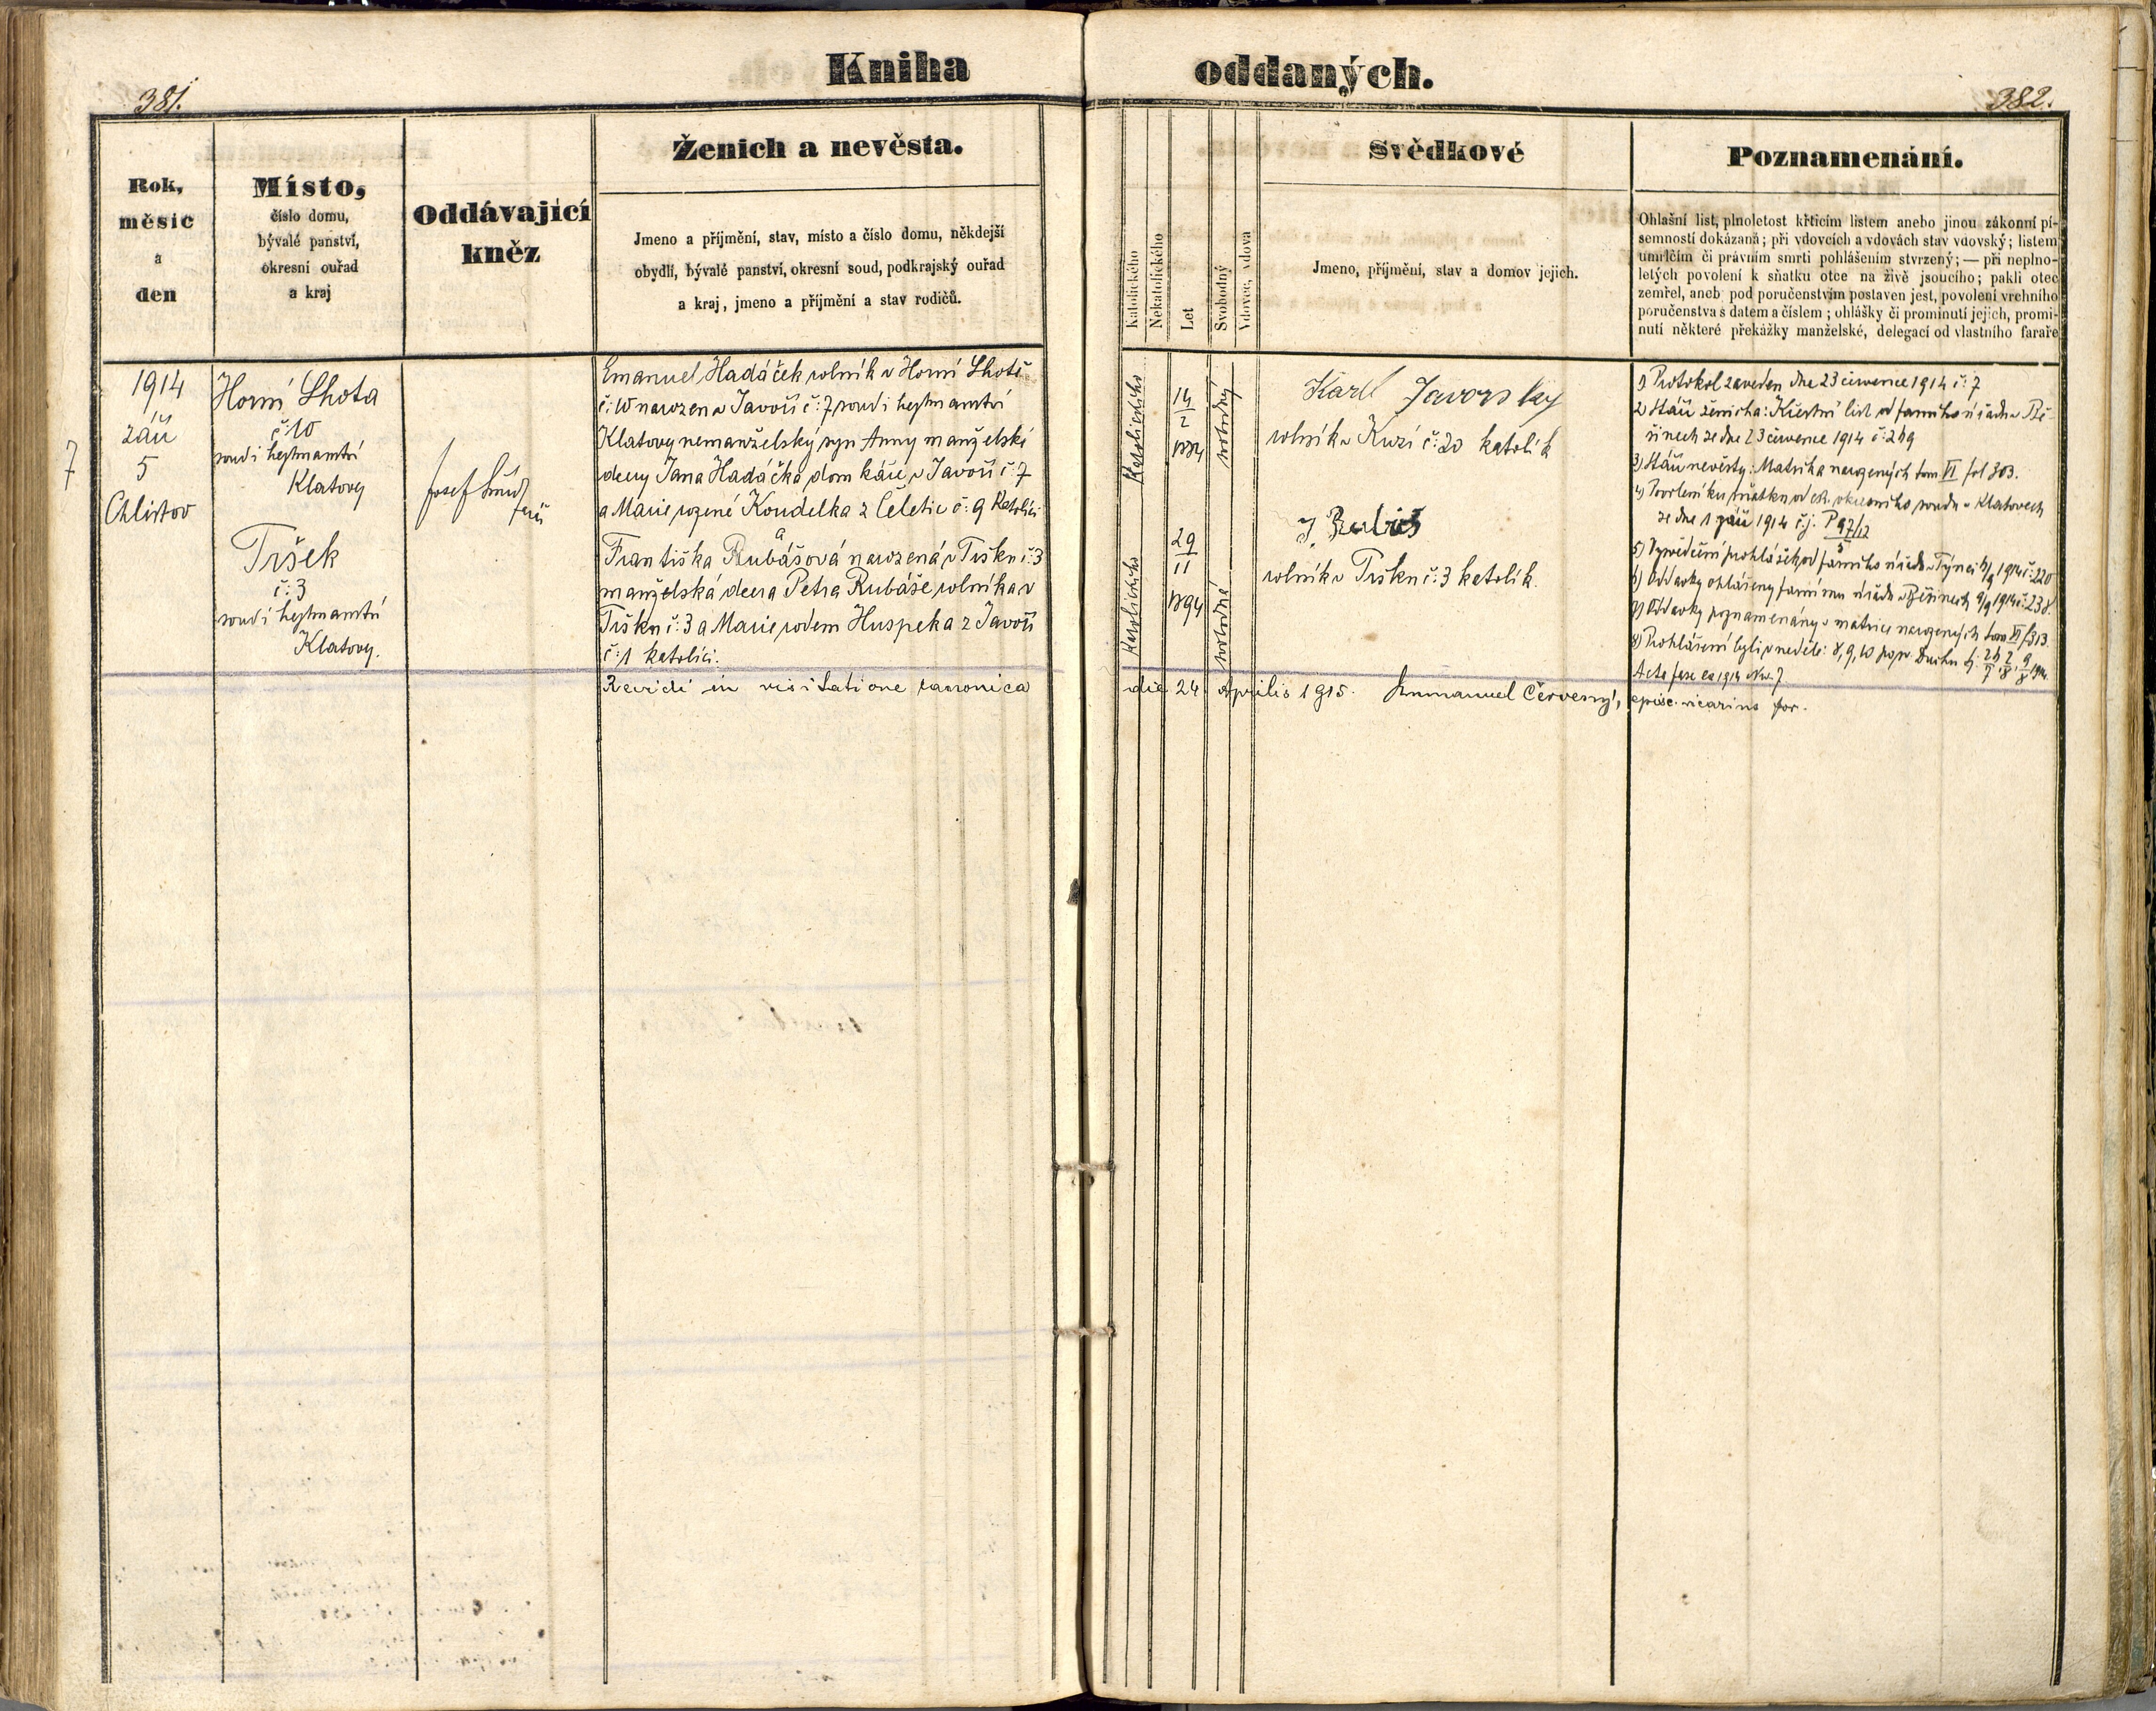 Kniha oddaných.
381.
382.
Rok,
měsíc
a
den
Místo,
číslo domu,
bývalé panství,
okresní ouřad
a kraj
Oddávající
kněz
Ženich a nevěsta.
Jmeno a příjmění, stav, místo a číslo domu, někdejší
obydlí, bývalé panství, okresní soud, podkrajský ouřad
a kraj, jmeno a příjmění a stav rodičů.
Katolického
Nekatolického
Let
Svobodný
Vdovec, vdova
Svědkové
Jmeno, příjmění, stav a domov jejich.
Poznamenání.
Ohlašní list, plnoletost křticím listem anebo jinou zákonní pí-
semností dokázaná; při vdovcích a vdovách stav vdovský; listem
umrlčím či právním smrti pohlášením stvrzený; — při neplno-
letých povolení k sňatku otce na živě jsoucího; pakli otec
zemřel, aneb pod poručenstvím postaven jest, povolení vrchního
poručenstva s datem a číslem; ohlášky či prominutí jejich, promi-
nutí některé překážky manželské, delegací od vlastního faráře
7
1914
září
5
Chlistov
Horní Lhota
č: 10
soud i hejtmanství
Klatovy
Tršek
č: 3
soud i hejtmanství
Klatovy.
Josef
farář
Emanuel Hadáček rolník v Horní Lhotě
č: 10 narozen v Javoří č: 7 soud i hejtmanství
Klatovy nemanželský syn Anny manželské
dcery Jana Hadáčka domkáře v Javoří č: 7
a Marie rozené Koudelka z Čeletic č: 9 katolíci
a
Františka Rubášová narozená v Tršku č: 3
manželská dcera Petra Rubáše rolníka v
Tršku č: 3 a Marie rodem Huspeka z Javoří
č: 1 katolíci.
Katolického
14
2
svobodný
Katolického
29
11
1894
svobodná
Karel Javorský
rolník v Kuzí č: 20 katolík
J. Rubáš
rolník v Tršku č: 3 katolík.
1) Protokol zaveden dne 23 července 1914 č: 7
2) Stáří ženicha: Křestní list od farního úřadu v Bě-
šinech ze dne 23 července 1914 č: 249
3) Stáří nevěsty: Matrika narozených tom VI fol 303.
4) Povolení ku sňatku od ck. okresního soudu v Klatovech
ze dne 1 září 1914 č.j. P 97/12
5
5) Vysvědčení prohlášek od farního úřadu v Týnci 1914 č: 220
6) Oddavky ohlášeny farnímu úřadu v Běšinech 9/9 1914 č: 238
7) Oddavky poznamenány v matrice narozených tom VI f 303
8) Prohlášení byli v neděle: 8, 9, 10 po sv. Duchu
Revidi in visitatione canonica die 24. Aprilis 1915. Emmanuel Červený, episc. vicarius for.